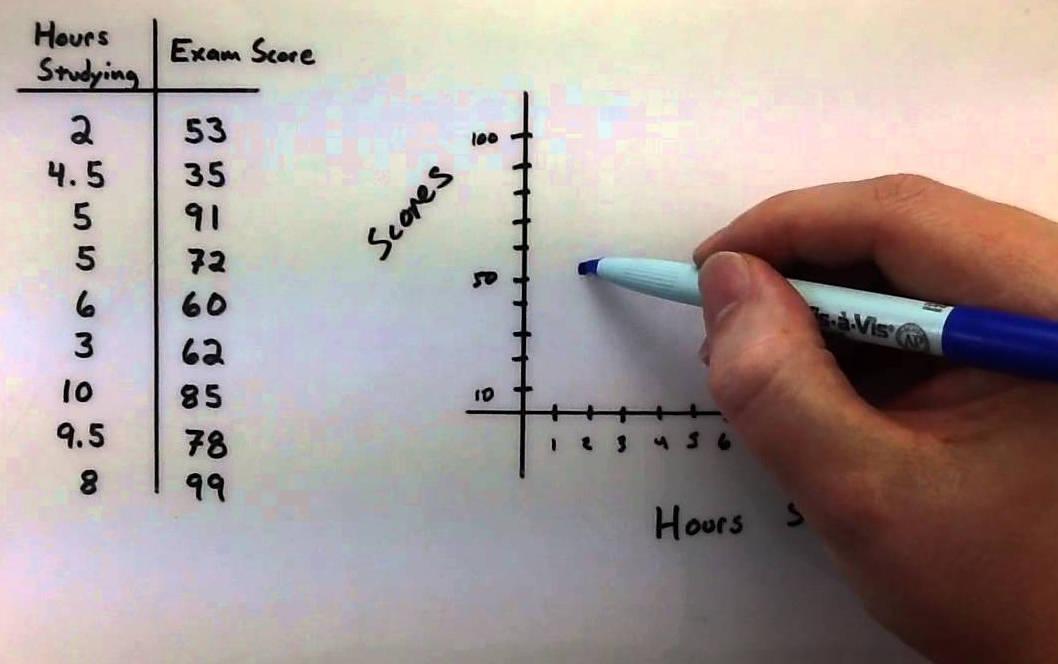 Hours
Studying
Exam Score
2 53
4.5 35
5 91
5 72
6 60
3 62
10 85
9.5 78
8 99
Scores
100
50
10
1 2 3 4 5 6
Hours S
Vis-à-Vis
AP